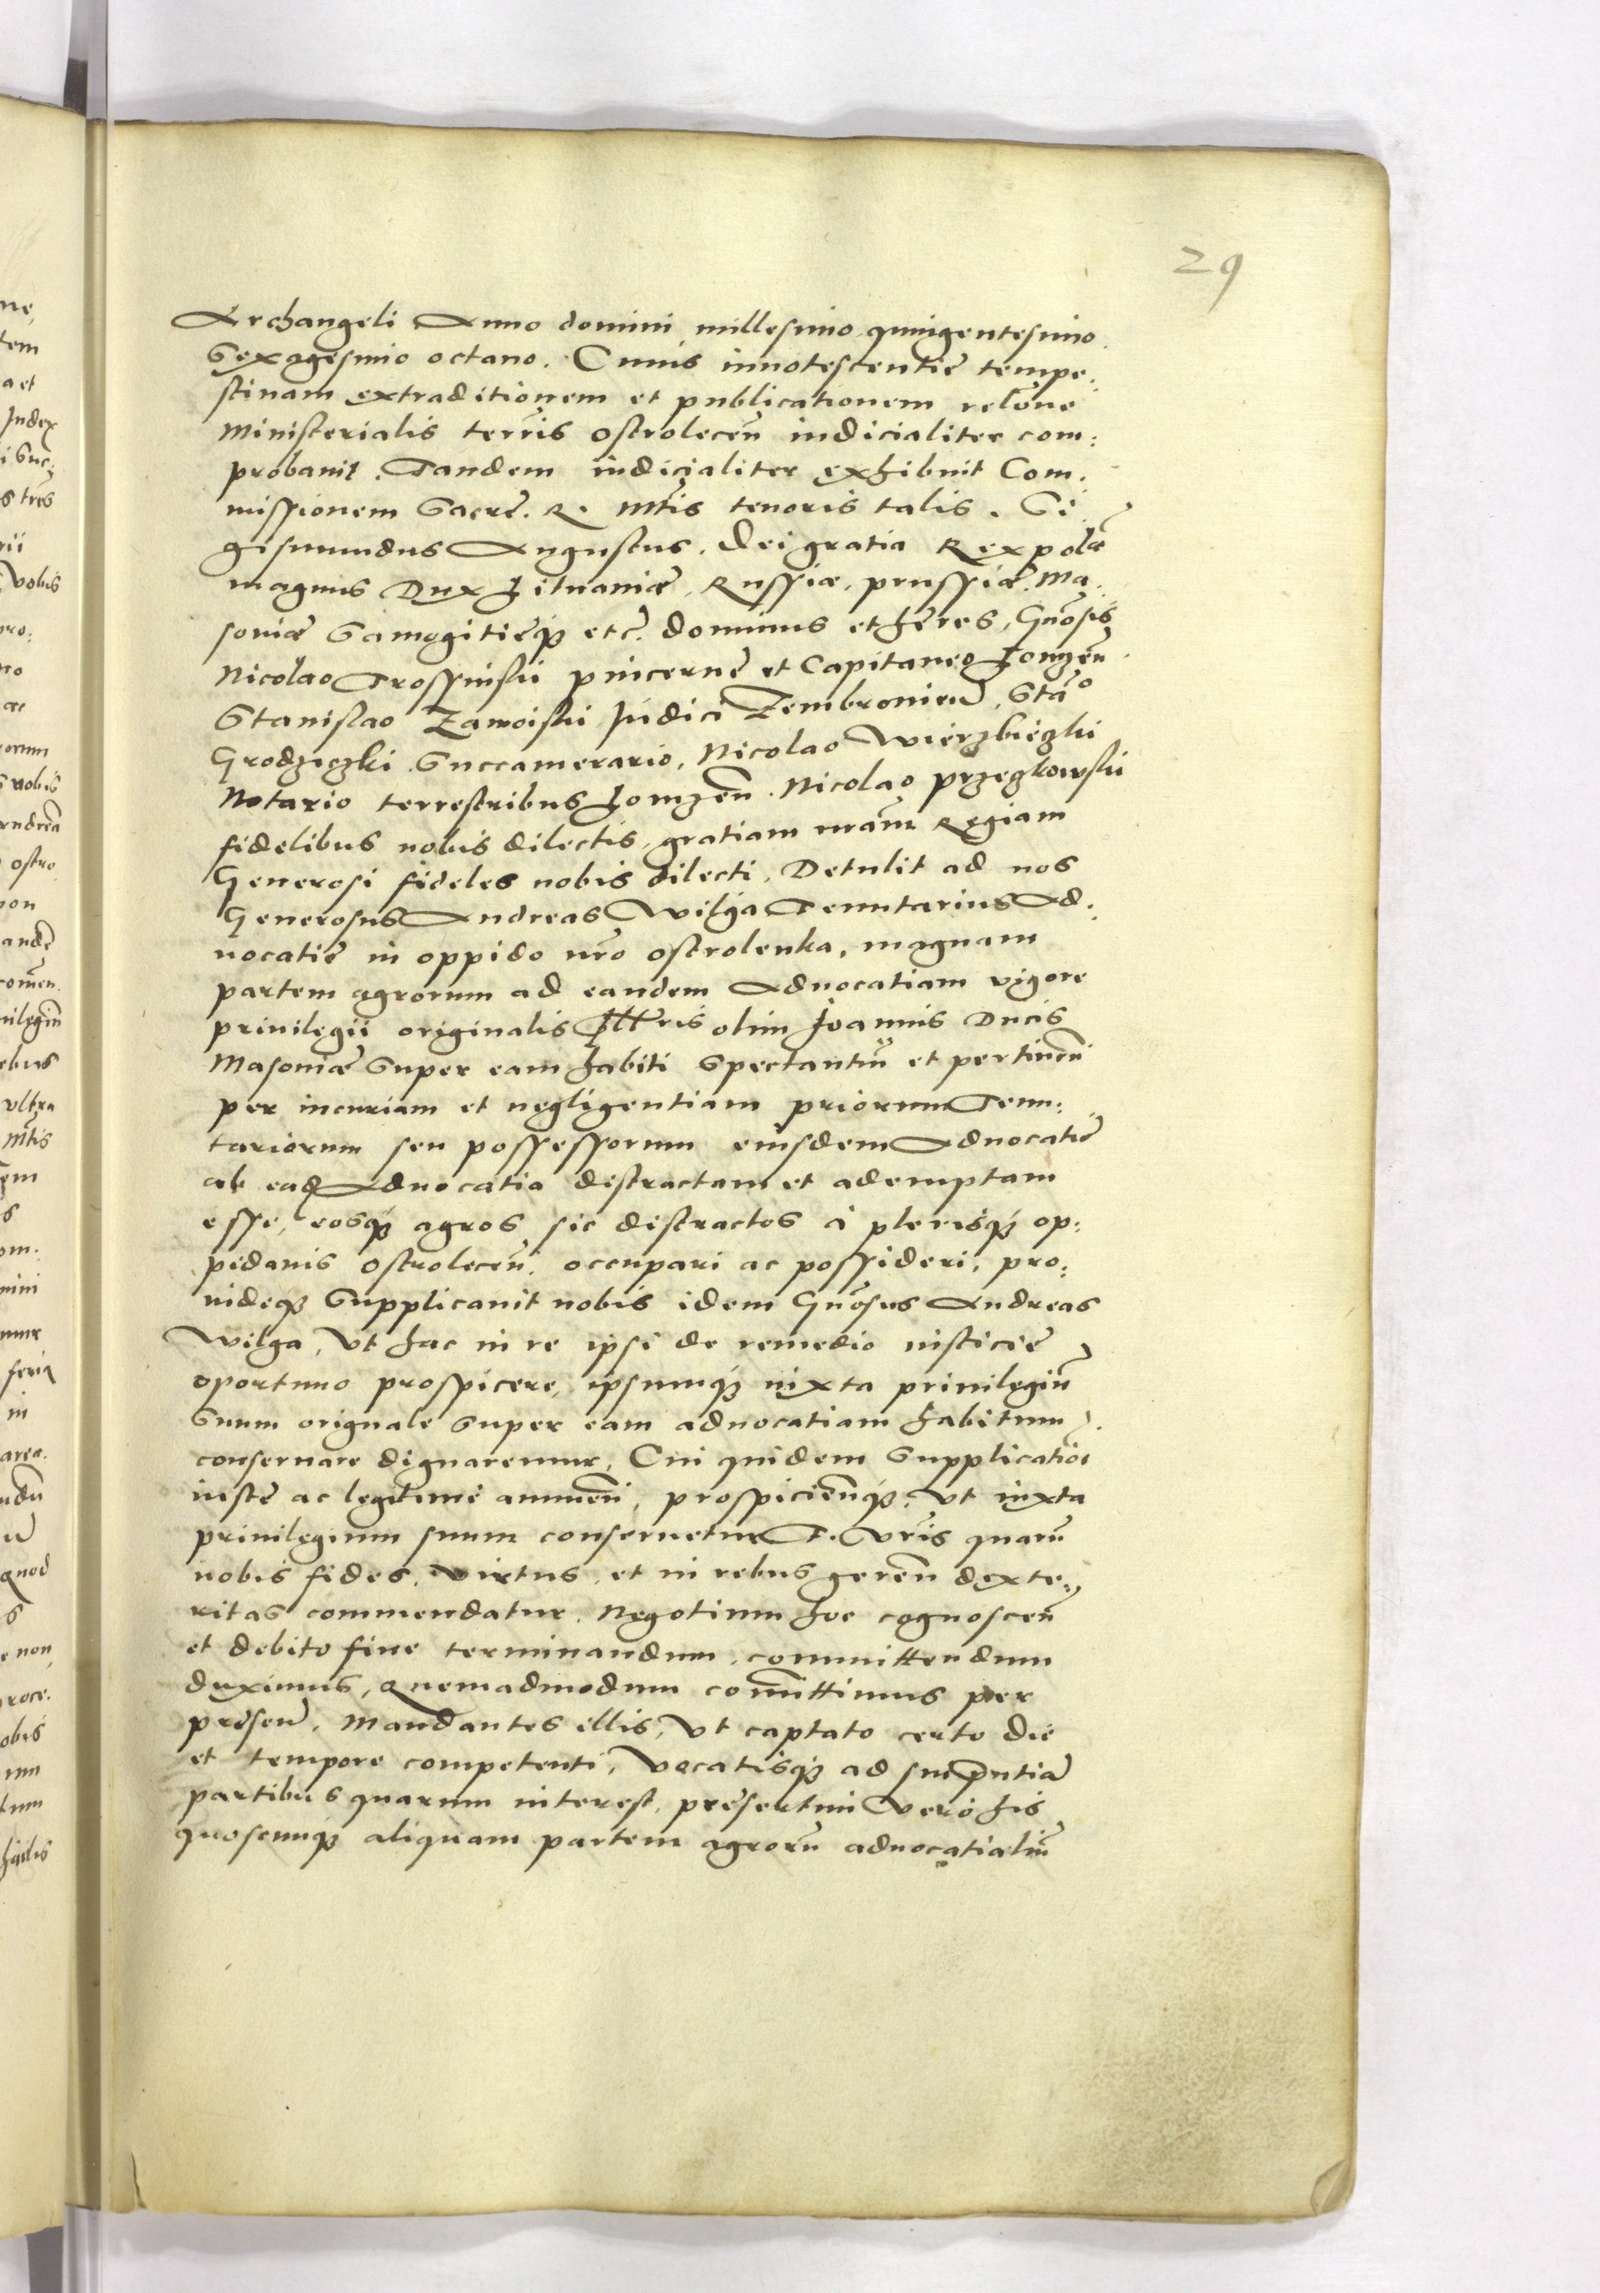 29
Archangeli Anno domini millesimo quingentesimo
Sexagesimo octavo. Cuius innotescentie tempe:
stivam extraditionem et publicationem relõne
Ministerialis terrĩs Ostrolecen̄ iudicialiter com:
probavit. Tandem iudicialiter exhibuit Com:
missionem Sacrę. R. Mtĩs tenoris talis. Si
gismundus Augustus. Dei gratia Rex polæ̃
magnus Dux Lituaniæ, Russiæ, prussiæ, Ma
soviæ Samogitięq₃ etc̃. dominus et hęres, Gñosis
Nicolao Trossinski pincernę et Capitaneo Lomzen̄
Stanislao Zamoiski Judici Zembrovien̄, Stão
Grodziczki Succamerario, Nicolao Wierzbiczki
Notario terrestribus Lomzen̄. Nicolao przegkowski
fidelibus nobis dilectis, gratiam nrãm Regiam
Generosi fideles nobis dilecti. Detulit ad nos
Generosus Andreas Wilga Tenutarius Ad:
vocatię in oppido nrõ Ostrolenka, magnam
partem agrorum ad eandem Advocatiam vigore
privilegii originalis Illris olim Joannis Ducis
Masoviæ super eam habiti spectantiũ et pertinen̄
per incuriam et negligentiam priorum Tenu:
tariorum seu possessorum eiusdem Advocatię
ab ead Advocatia distractam et ademptam
esse, eosq₃ agros sic distractos à plerisq₃ op:
pidanis Ostrolecen̄. occupari ac possideri, pro:
videq₃ supplicavit nobis idem Gñosus Andreas
Wilga, Vt hac in re ipsi de remedio iusticię
oportuno prospicere, ipsumq₃ iuxta privilegiũ
suum originale super eam advocatiam habitum
conservare dignaremur, Cui quidem supplicatiõi
iustę ac legitimę annuen̄, prospicien̄q₃, Vt iuxta
privilegium suum conservetur F. Vrĩs quarũ
nobis fides, virtus, et in rebus geren̄ dexte:
ritas commendatur. Negotium hoc cognoscen̄
et debito fine terminandum, committendum
duximus, Quemadmodum com̃ittimus per
pręsen̄. Mandantes illis, Vt captato certo die
et tempore competenti, Vocatisq₃ ad sui p̃ntiã
partibus quarum interest, pręsertim vero his
quoscunq₃ aliquam partem agrorũ advocatialiũ